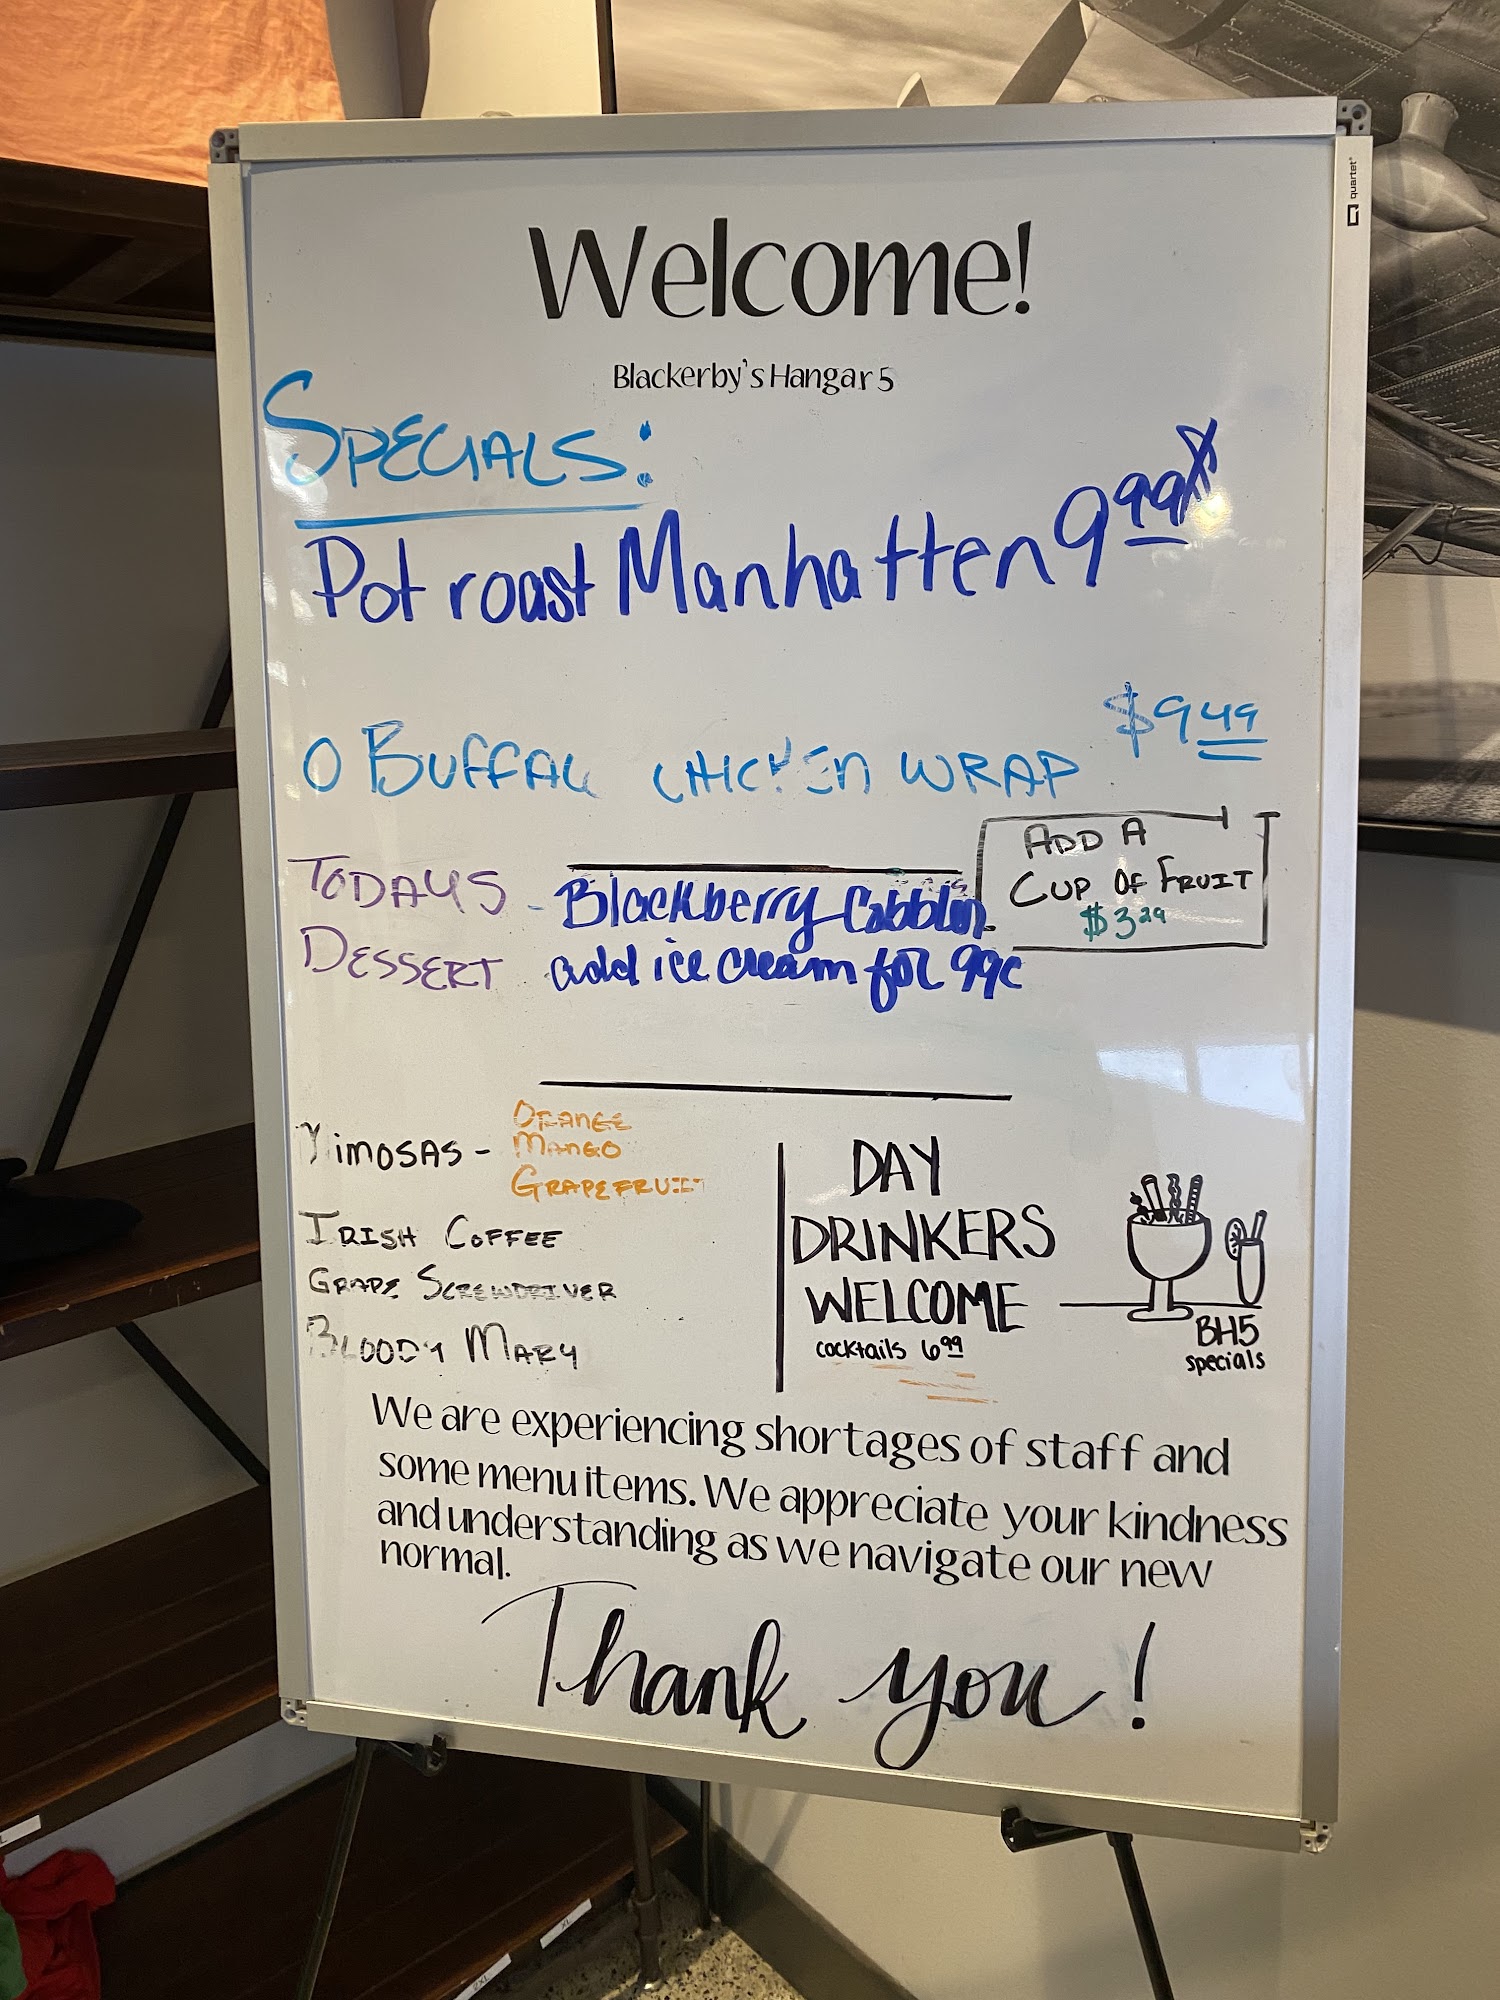 quartet
Welcome!
Blackerby's Hangar 5
SPECIALS:
Pot roast Manhatten 9 99
O BUFFAL CHICKEN WRAP $9 49
ADD A
CUP OF FRUIT
$3 29
TODAYS - Blackberry Cobbler
DESSERT add ice cream for 99¢
MIMOSAS - ORANGE
MANGO
GRAPEFRUIT
IRISH COFFEE
GRAPE SCREWDRIVER
BLOODY MARY
DAY
DRINKERS
WELCOME
cocktails 6 99
BH5
specials
We are experiencing shortages of staff and
some menu items. We appreciate your kindness
and understanding as we navigate our new
normal.
Thank you!
XL
2XL